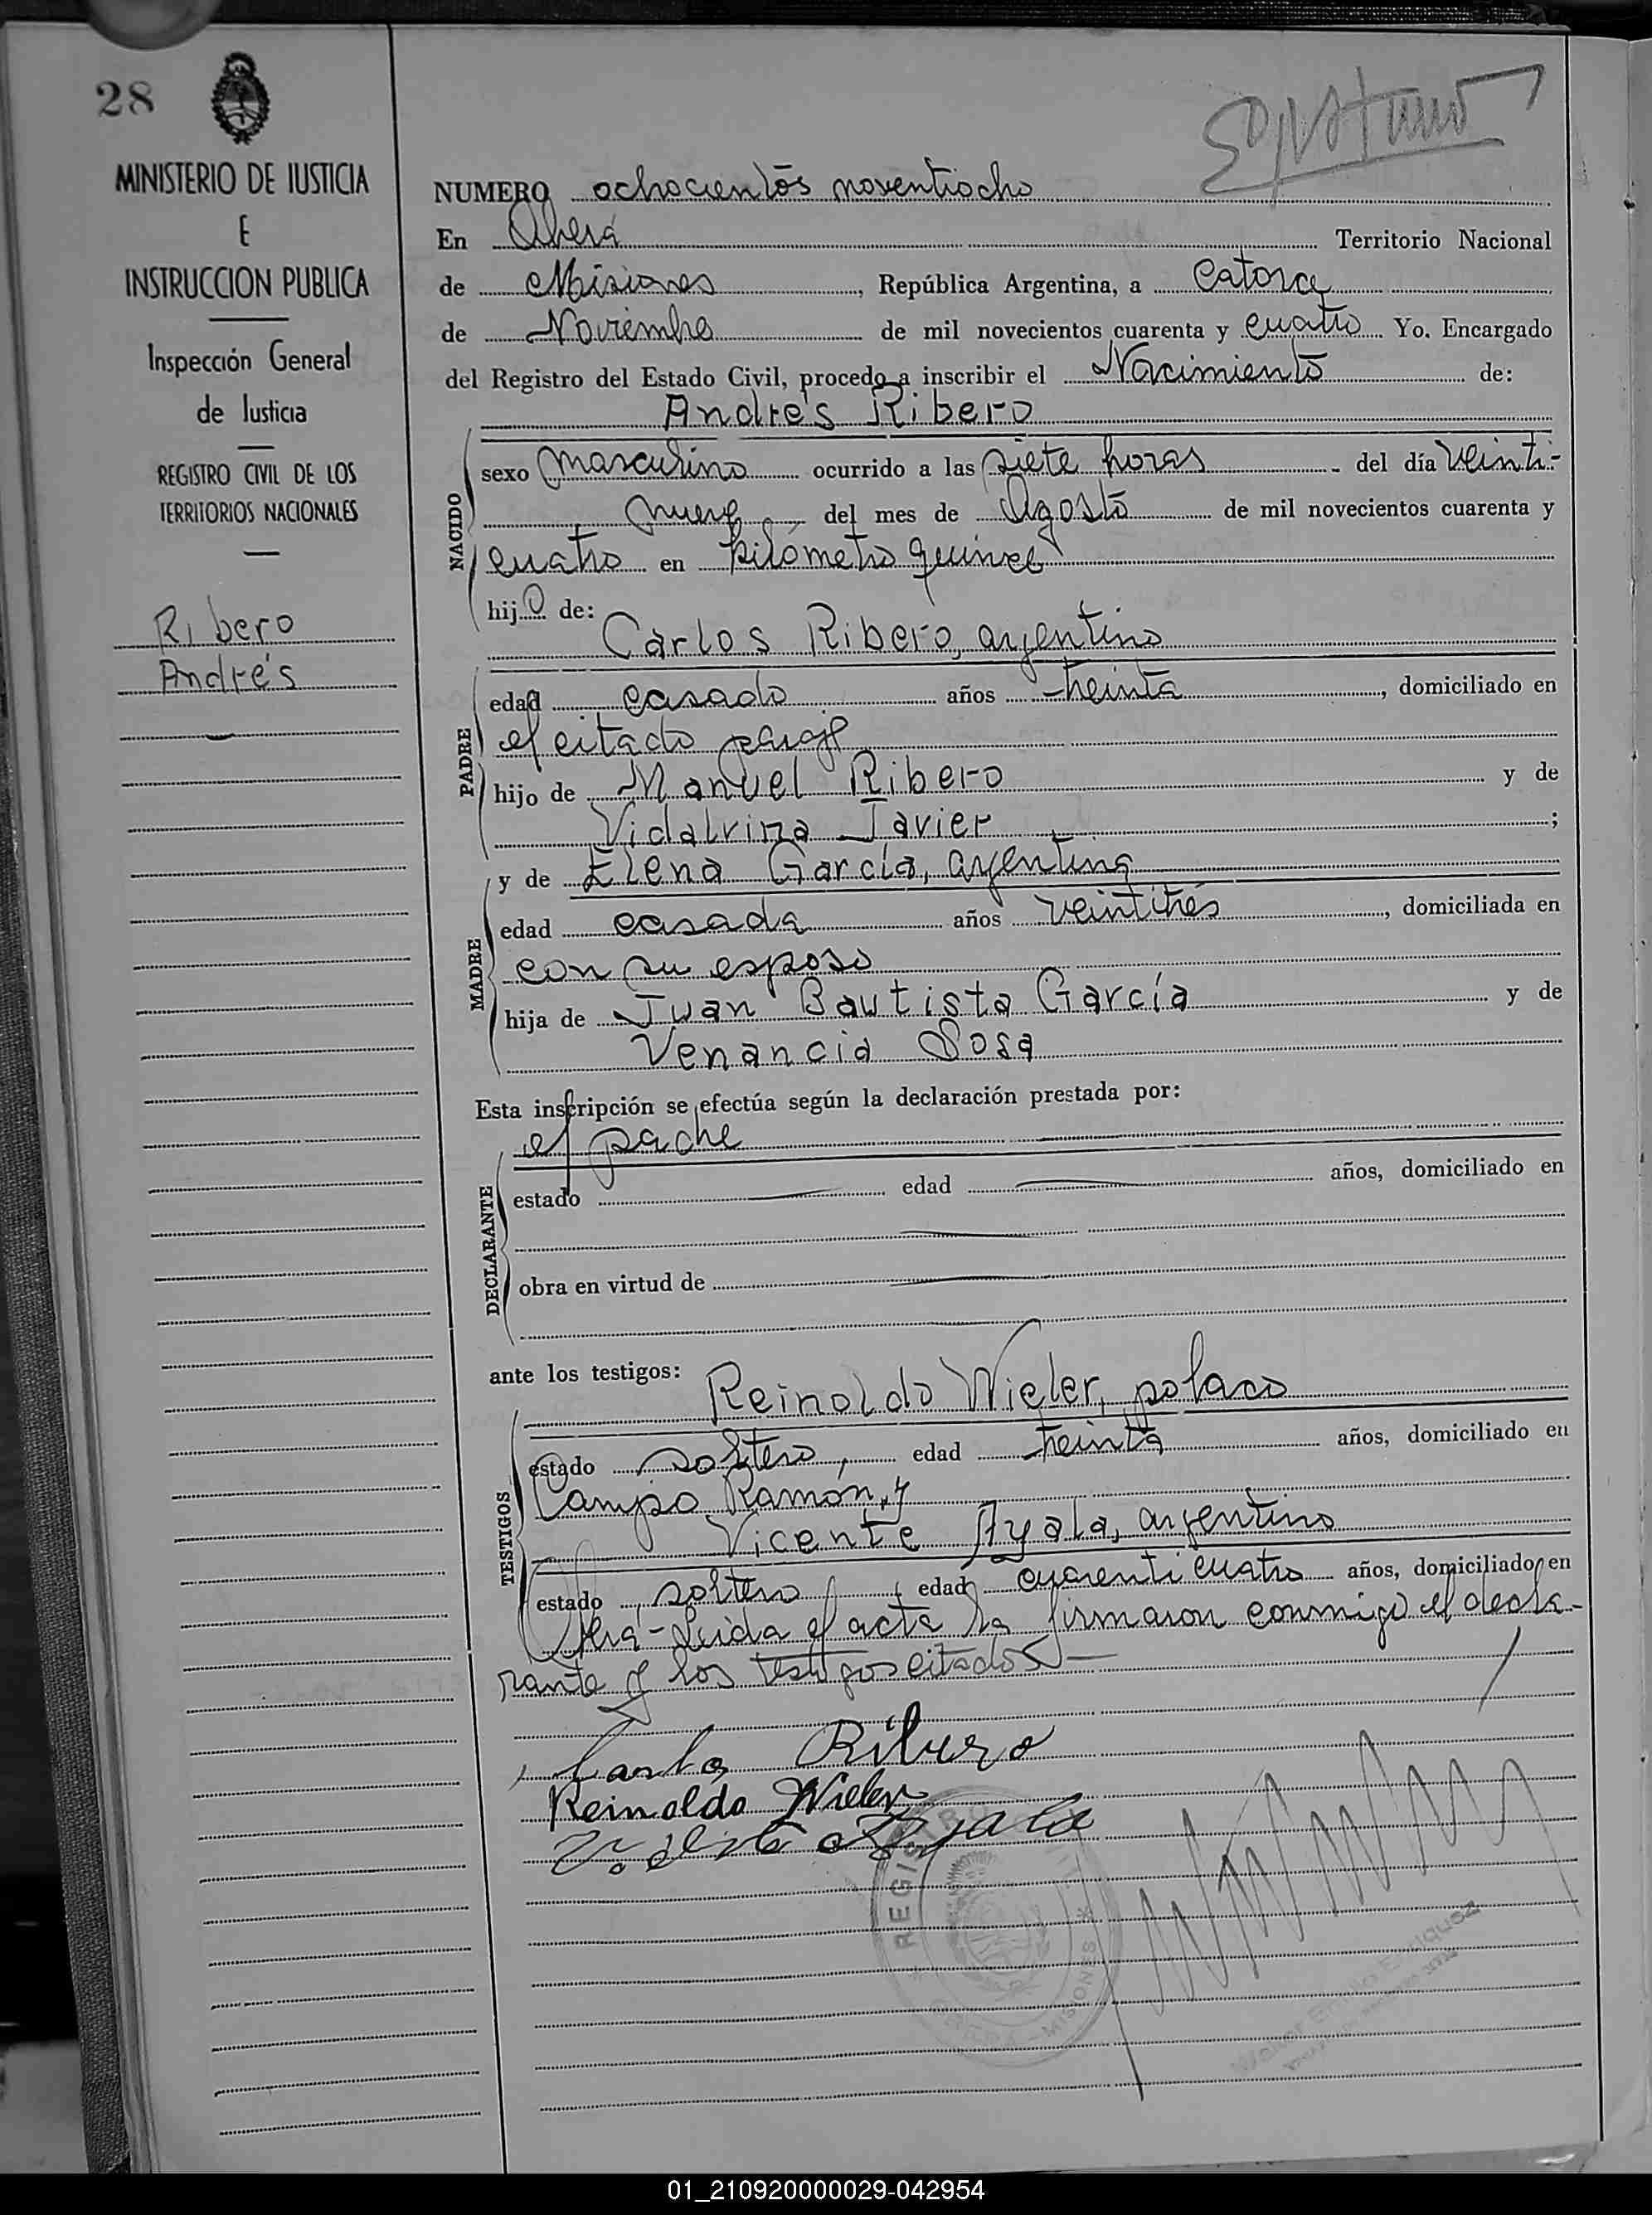 28
MINISTERIO DE JUSTICIA
E
INSTRUCCION PUBLICA
Inspección General
de Justicia
REGISTRO CIVIL DE LOS
TERRITORIOS NACIONALES
Ribero
Andrés
NUMERO ochocientos noventiocho
En Oberá Territorio Nacional
de Misiones, República Argentina, a Catorce
de Noviembre de mil novecientos cuarenta y cuatro Yo. Encargado
del Registro del Estado Civil, procedo a inscribir el Nacimiento de:
Andrés Ribero
NACIDO
sexo masculino ocurrido a las siete horas del día veinti-
nueve del mes de Agosto de mil novecientos cuarenta y
cuatro en kilómetro quince
hijo de:
Carlos Ribero, argentino
PADRE
edad casado años treinta, domiciliado en
el citado paraje
hijo de Manuel Ribero y de
Vidalvina Javier;
y de Elena García, argentina
MADRE
edad casada años veintitrés, domiciliada en
con su esposo
hija de Juan Bautista García y de
Venancia Sosa
Esta inscripción se efectúa según la declaración prestada por:
el padre
DECLARANTE
estado edad años, domiciliado en
obra en virtud de
ante los testigos:
Reinoldo Wieler, polaco
TESTIGOS
estado soltero, edad treinta años, domiciliado en
Campo Ramón, y
Vicente Ayala, argentino
estado soltero, edad cuarenticuatro años, domiciliado en
Oberá-Leida el acta la firmaron conmigo el decla-
rante y los testigos citados
Carlos Ribero
Reinoldo Wieler
Vicente Ayala
REGISTRO
OBERA - MISIONES
Enriquez
01_210920000029-042954